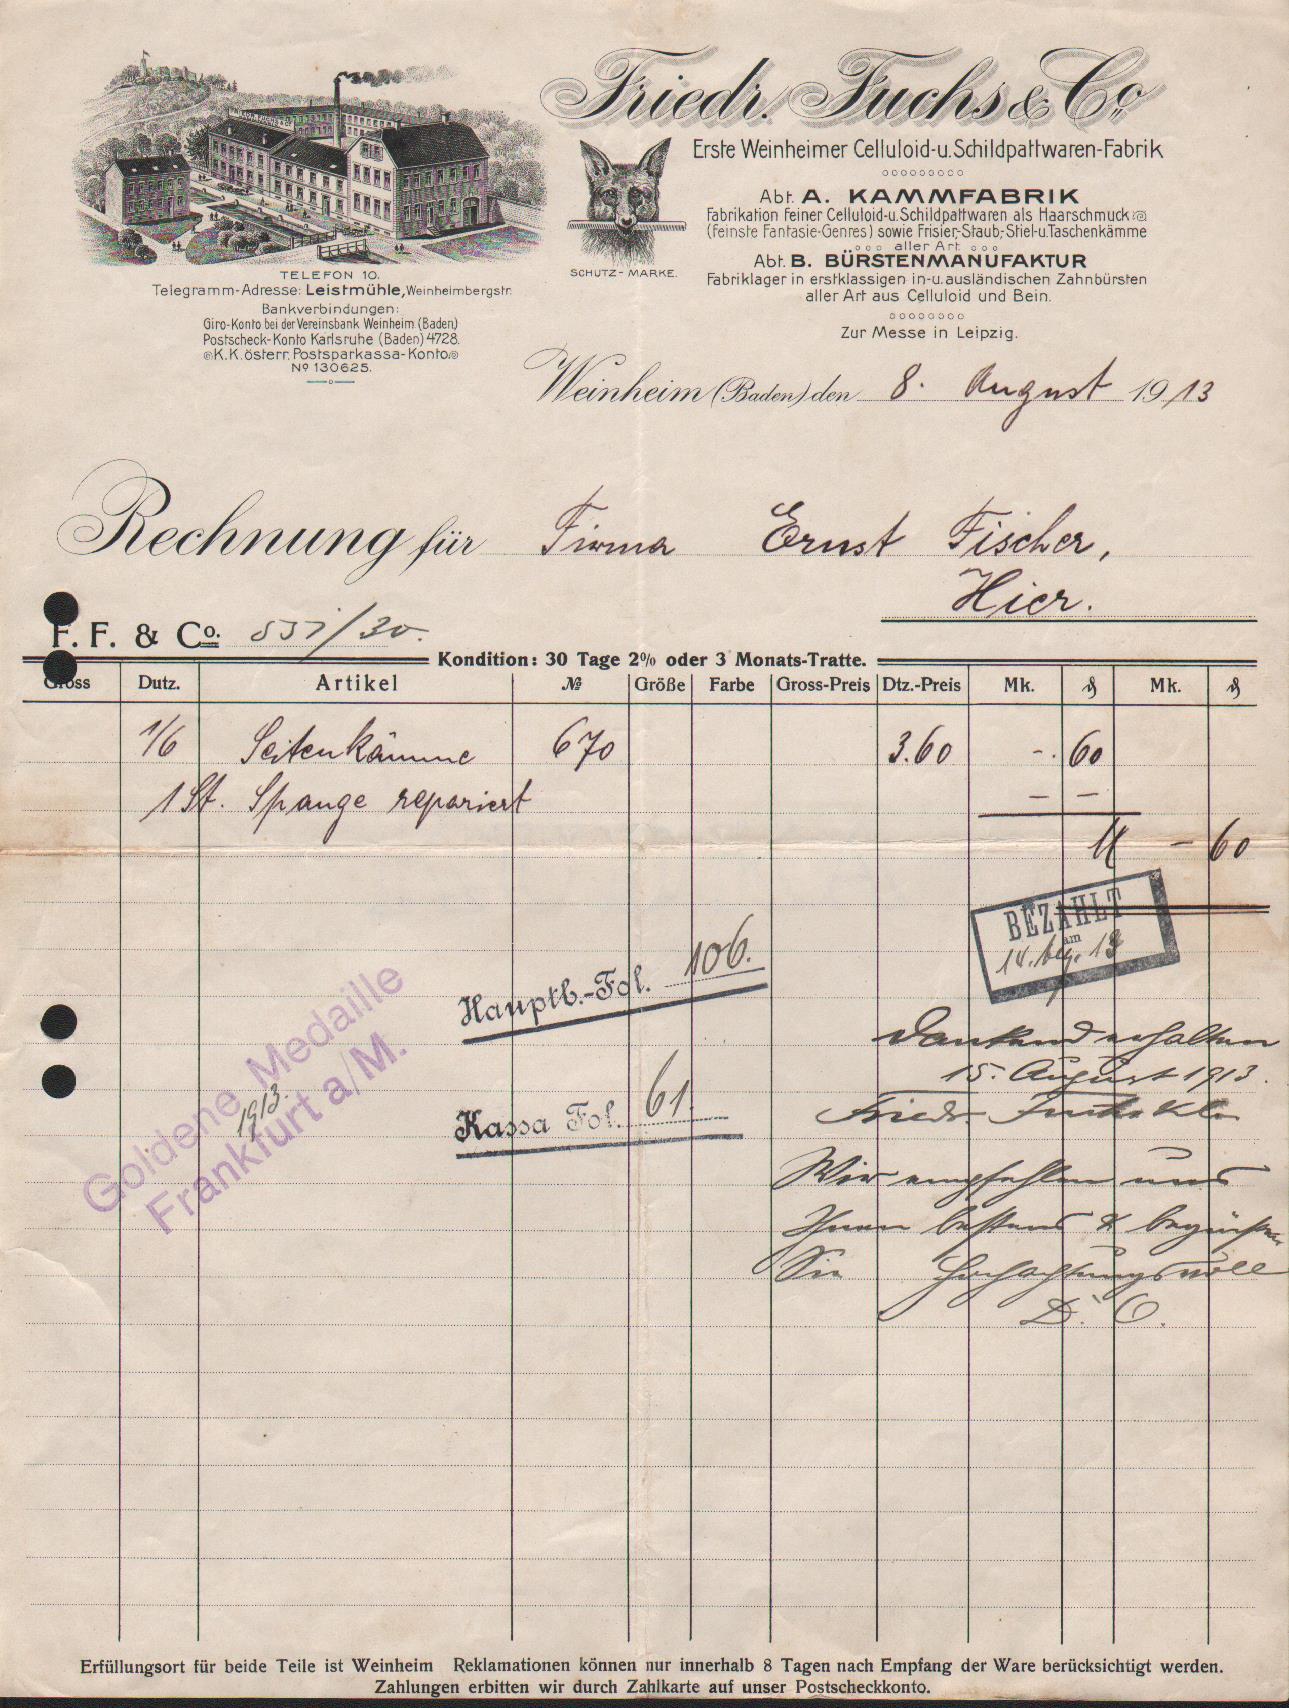 Friedr. Fuchs & Co.
Erste Weinheimer Celluloid-u. Schildpattwaren-Fabrik
Abt. A. KAMMFABRIK
Fabrikation feiner Celluloid-u. Schildpattwaren als Haarschmuck
(Feinste Fantasie-Genres) sowie Frisier-, Staub-, Stiel-u. Taschenkämme
aller Art
Abt. B. BÜRSTENMANUFAKTUR
Fabriklager in erstklassigen in-u. ausländischen Zahnbürsten
aller Art aus Celluloid und Bein.
Zur Messe in Leipzig.
SCHUTZ-MARKE.
TELEFON 10.
Telegramm-Adresse: Leistmühle, Weinheimbergstr.
Bankverbindungen:
Giro-Konto bei der Vereinsbank Weinheim (Baden)
Postscheck-Konto Karlsruhe (Baden) 4728.
K.K. österr. Postsparkassa-Konto
No 130625.
Weinheim (Baden) den 8. August 1913
Rechnung für Firma Ernst Fischer,
Hier.
F. F. & Co. /30.
Kondition: 30 Tage 2% oder 3 Monats-Tratte.
Gross Dutz. Artikel № Größe Farbe Gross-Preis Dtz.-Preis Mk. ₰ Mk. ₰
1/6 Seitenkämme 670 3.60 -. 60
1 St. Spange repariert — —
M — 60
BEZAHLT
am
Hauptb.-Fol. 106.
Goldene Medaille
1913.
Frankfurt a/M.
Kassa Fol. 61.
Dankend erhalten
15. August 1913.
Friedr. Fuchs & Co
Wir empfehlen uns
Ihnen bestens & begrüßen
Sie Hochachtungsvoll
D. O.
Erfüllungsort für beide Teile ist Weinheim Reklamationen können nur innerhalb 8 Tagen nach Empfang der Ware berücksichtigt werden.
Zahlungen erbitten wir durch Zahlkarte auf unser Postscheckkonto.